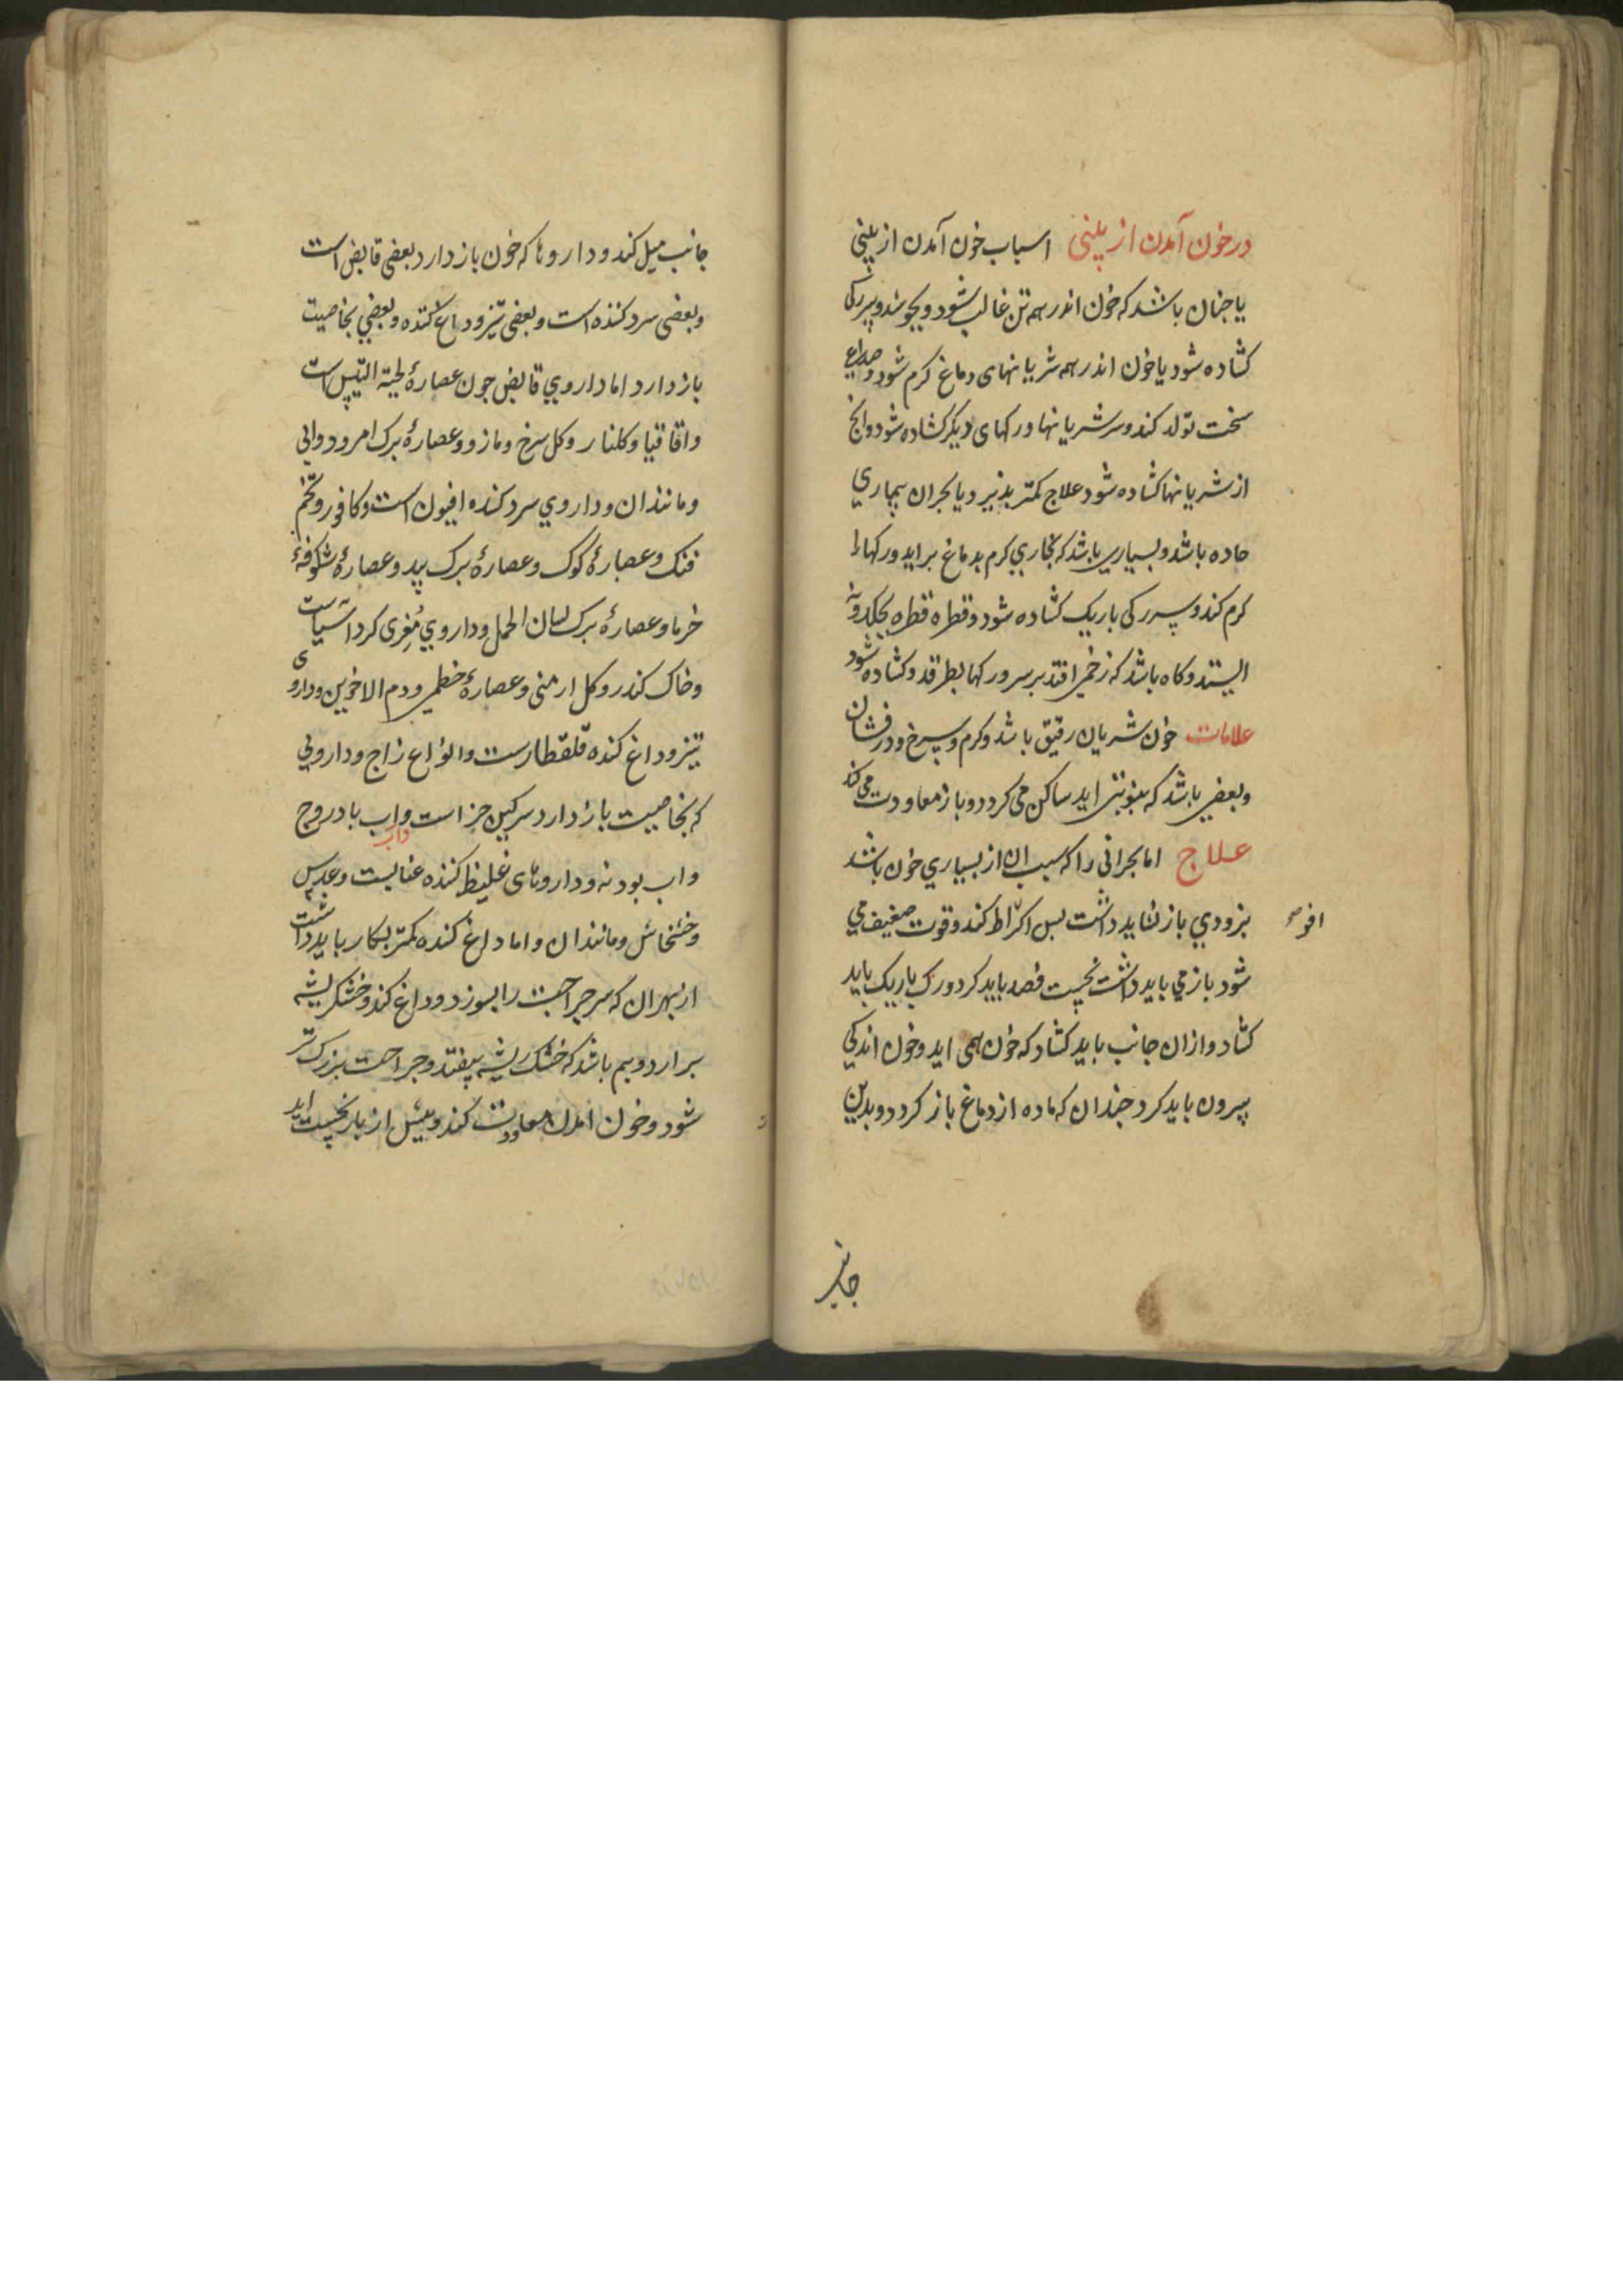 درخون آمدن از بینی اسباب خون آمدن از بینی
یا جنان باشد که خون اندر همه تن غالب شود و بجوشد و سر رکی
کشاده شود یا خون اندر همه شریانهای دماغ کرم شود و صداع
سخت تولد کند و سر شریانها و رکهای دیکر کشاده شود وانج
از شریانها کشاده شود علاج کمتر بذیرد یا بحران بیماری
حاده باشد و بسیاری باشد که بخاری کرم بدماغ براید و رکها را
کرم کند و سر رکی باریک کشاده شود و قطره قطره بچکد و نه
ایستد و کاه باشد که زخمی افتد بر سر و رکها بطرقد و کشاده شود
علامات خون شریان رقیق باشد و کرم و سرخ و درفشان
و بعضی باشد که بنوبتی اید ساکن می کردد و باز معاودت می کند
علاج اما بحرانی را که سبب ان از بسیاری خون باشد
بزودی باز نشاید داشت بس اکر افراط کند و قوت ضعیف می
شود باز می باید داشت نخست فصد باید کرد و رک باریک باید
کشاد و ازان جانب باید کشاد که خون همی اید و خون اندکی
بیرون باید کرد جندان که ماده از دماغ باز کردد و بدین
جانب
جانب میل کند و داروها که خون باز دارد بعضی قابض است
و بعضی سرد کننده است و بعضی تیز و داغ کننده و بعضی بخاصیت
باز دارد اما داروی قابض جون عصارهٔ لحیة التیس است
و اقاقیا و کلنار و کل سرخ و مازو و عصارهٔ برک امرود و ابی
و مانند ان و داروی سرد کننده افیون است و کافور و تخم
فنک و عصارهٔ کوک و عصارهٔ برک بید و عصارهٔ شکوفهٔ
خرما و عصارهٔ برک لسان الحمل و داروی مُغری کرد اسیاست
و خاک کندر و کل ارمنی و عصارهٔ خطمی و دم الاخوین و داروی
تیز و داغ کننده قلقطارست و انواع زاج و داروی
که بخاصیت باز دارد سرکین خر است و اب بادروج
و اب بودنه و داروهای غلیظ کننده عنابست و عدس
و خشخاش و مانند ان و اما داغ کننده کمتر بکار باید داشت
از بهر ان که سر جراحت را بسوزد و داغ کند و خشک ریشه
برارد و بیم باشد که خشک ریشه بیفتد و جراحت بزرک تر
شود و خون امدن معاودت کند و بیش از بار نخست اید